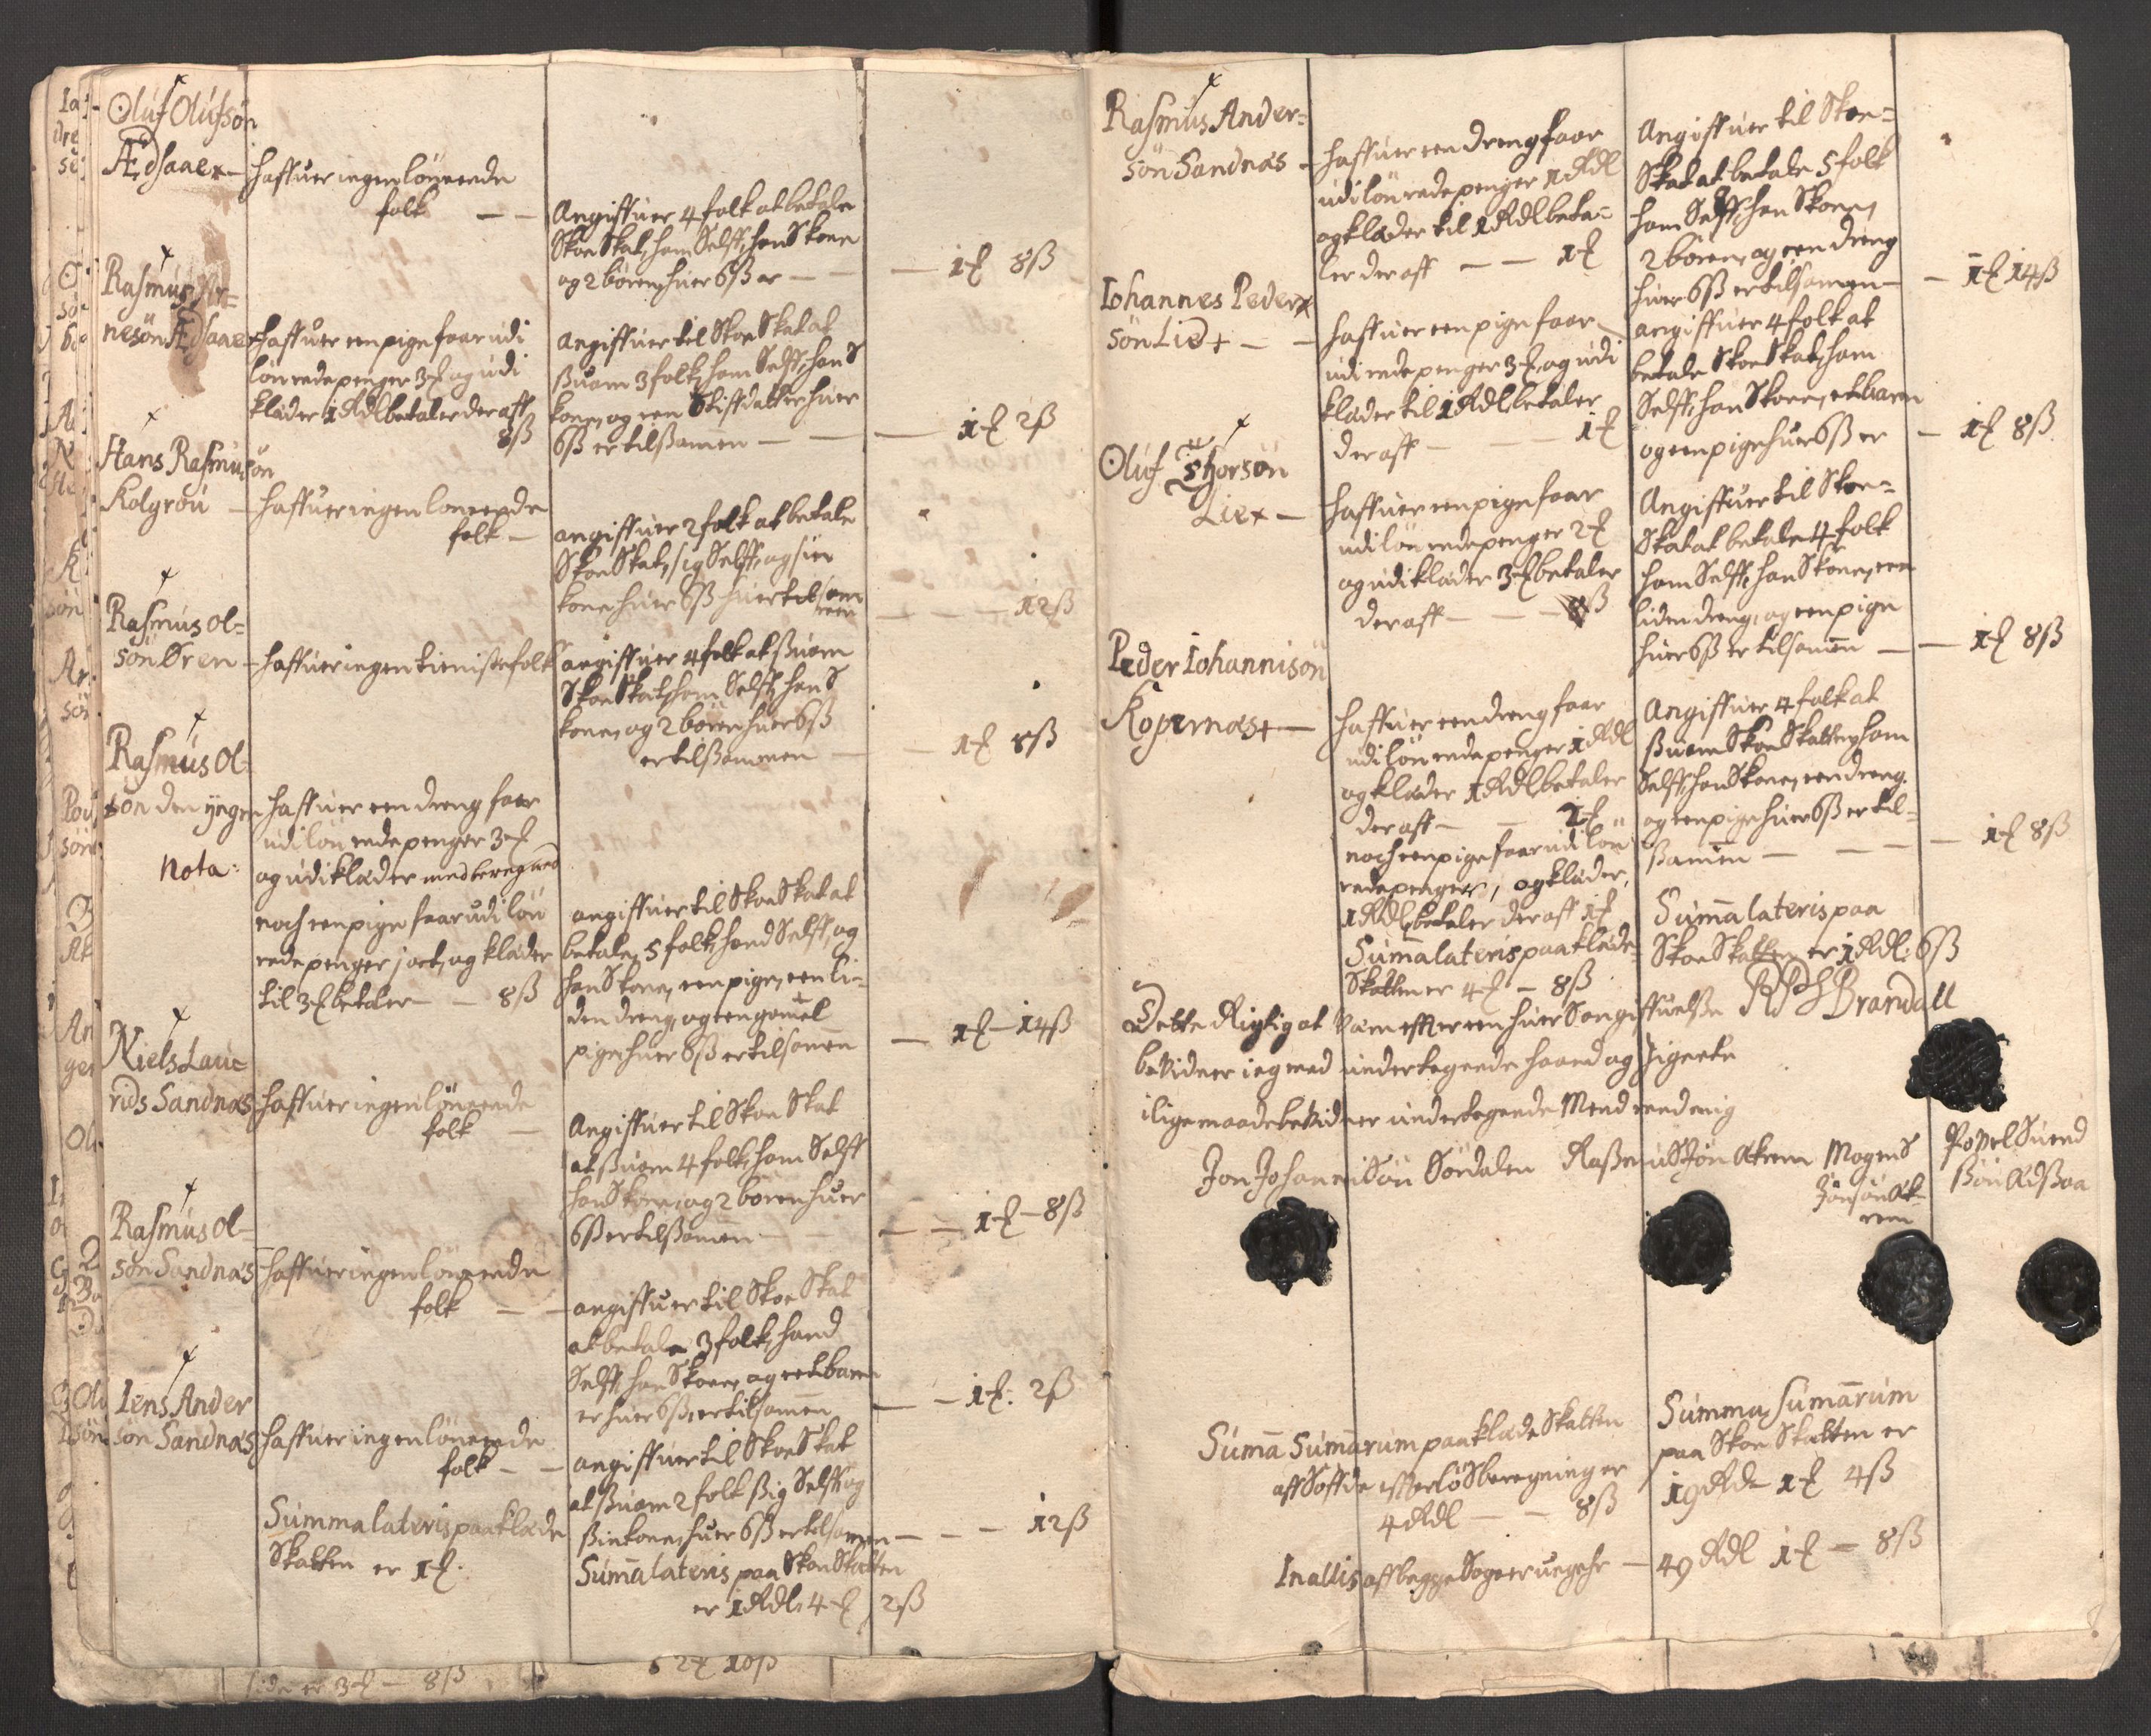 Oluf Olufsøn
Ædsaae
haffuer ingen lönnende
folk
Angiffuer 4 folk at betale
Skoe Skat, ham Selff, hans kone
og 2 bören, huer 6 ß er
1 ₰ 8 ß
Rasmus
nesøn Ædsaae
haffuer een pige faar udi
lön rede penger 3 ₰ og udi
klæder 1 Rdl betaler der aff
8 ß
angiffuer til Skoe Skat at
ßuare 3 folk, ham Selff, hans
kone, og een Stiffdatter huer
6 ß er tilßamen
1 ₰ 2 ß
Hans Rasmusøn
Kolgrou
haffuer ingen lönnende
folk
angiffuer 2 folk at betale
Skoe Skat, sig Selff, og sin
kone, huer 6 ß huer tilsam
men
12 ß
Rasmus ol=
søn Øren
haffuer ingen tieniste folk
angiffuer 4 folk at ßuare
Skoe Skat, ham Selff, hans
kone, og 2 börn huer 6 ß
er tilßammen
1 ₰ 8 ß
Rasmus Ol
søn den yngre
Nota:
haffuer een dreng faar
udi lön rede penger 3 ₰
og udi klæder med beregned
noch een pige faar udi lön
rede penger j ort, og klæder
til 3 ₰ betaler 8 ß
angiffuer til Skoe Skat at
betale 5 folk, hand Selff, og
hans kone, een pige, een li=
den dreng, og een gamel
pige, huer 6 ß er tilsamen
1 ₰ 14 ß
Niels Lau=
rids Sandnæs
haffuer ingen lönnende
folk
Angiffuer til Skoe Skat
at ßuare 4 folk, ham Selff
hans kone, og 2 börn huer
6 ß er tilßamen
1 ₰ 8 ß
Rasmus ol
søn Sandnæs
haffuer ingen lönnende
folk
angiffuer til Skoe Skat
at betale 3 folk, hand
Selff, hans kone, og eet barn
er huer 6 ß, er tilsamen
1 ₰: 2 ß
Iens Ander
søn Sandnæs
haffuer ingen lönnende
folk
angiffuer til Skoe Skat
at ßuare 2 folk ßig Selff og
ßin kone, huer 6 ß er tilsamen
12 ß
Summa lateris paa klæde
Skatten er 1 ₰.
Summa lateris paa Skoe Skatten
er 1 Rdl, 4 ₰ 2 ß
Rasmus Ander=
søn Sandnæs
haffuer een dreng faar
udi lön rede penger 1 Rdl
og klæder til 1 Rdl beta=
ler der aff 1 ₰
Angiffuer til Skoe=
Skat at betale 5 folk
ham Selff, hans kone,
2 börn, og een dreng
huer 6 ß er tilsamen
1 ₰ 14 ß
Iohannes Peder
søn Lie
haffuer een pige faar
udi rede penger 3 ₰, og udi
klæder til 1 Rdl, betaler
der aff 1 ₰
angiffuer 4 folk at
betale Skoe Skat, ham
Selff, hans kone, et barn
og een pige huer 6 ß er
1 ₰ 8 ß
Oluf
Lie
haffuer een pige faar
udi lön rede penger 2 ₰
og udi klæder 3 ₰ betaler
der aff 8 ß
Angiffuer til Skoe=
Skat at betale 4 folk
ham Selff, hans kone, een
liden dreng, og een pige
huer 6 ß er tilsamen
1 ₰ 8 ß
Peder Iohannisøn
Kopernæs
haffuer een dreng faar
udi lön rede penger 1 Rdl
og klæder 1 Rdl, betaler
der aff 1 ₰
noch een pige faar udi lön
rede penger, og klæder,
1 Rdl, betaler der aff 1 ₰
Angiffuer 4 folk at
ßuare Skoe Skatten, ham
Selff, hans kone, een dreng
og een pige huer 6 ß er til=
ßamen
1 ₰ 8 ß
Summa lateris paa klæde=
Skatten er 4 ₰ 8 ß
Summa lateris paa
Skoe Skatten er 1 Rdl: 6 ß
Dette Rigtig at være effter een huers angiffuelße
Brandall
bekidner ieg med underteggende haand og Signete
ilige maade bekidner underteggende Mend med mig
Jon Johannisøn Sördalen
Mogens
Jonsøn Ak
rem
Poßel Suend
ßøn Ædßaa
Summa Summarum paa klæde Skatten
4 Rdl 8 ß
Summa Summarum
paa Skoe Skatten er
19 Rdl 1 ₰ 4 ß
In allis aff begge
49 Rdl 1 ₰ 8 ß
side er 3 ₰ 8 ß